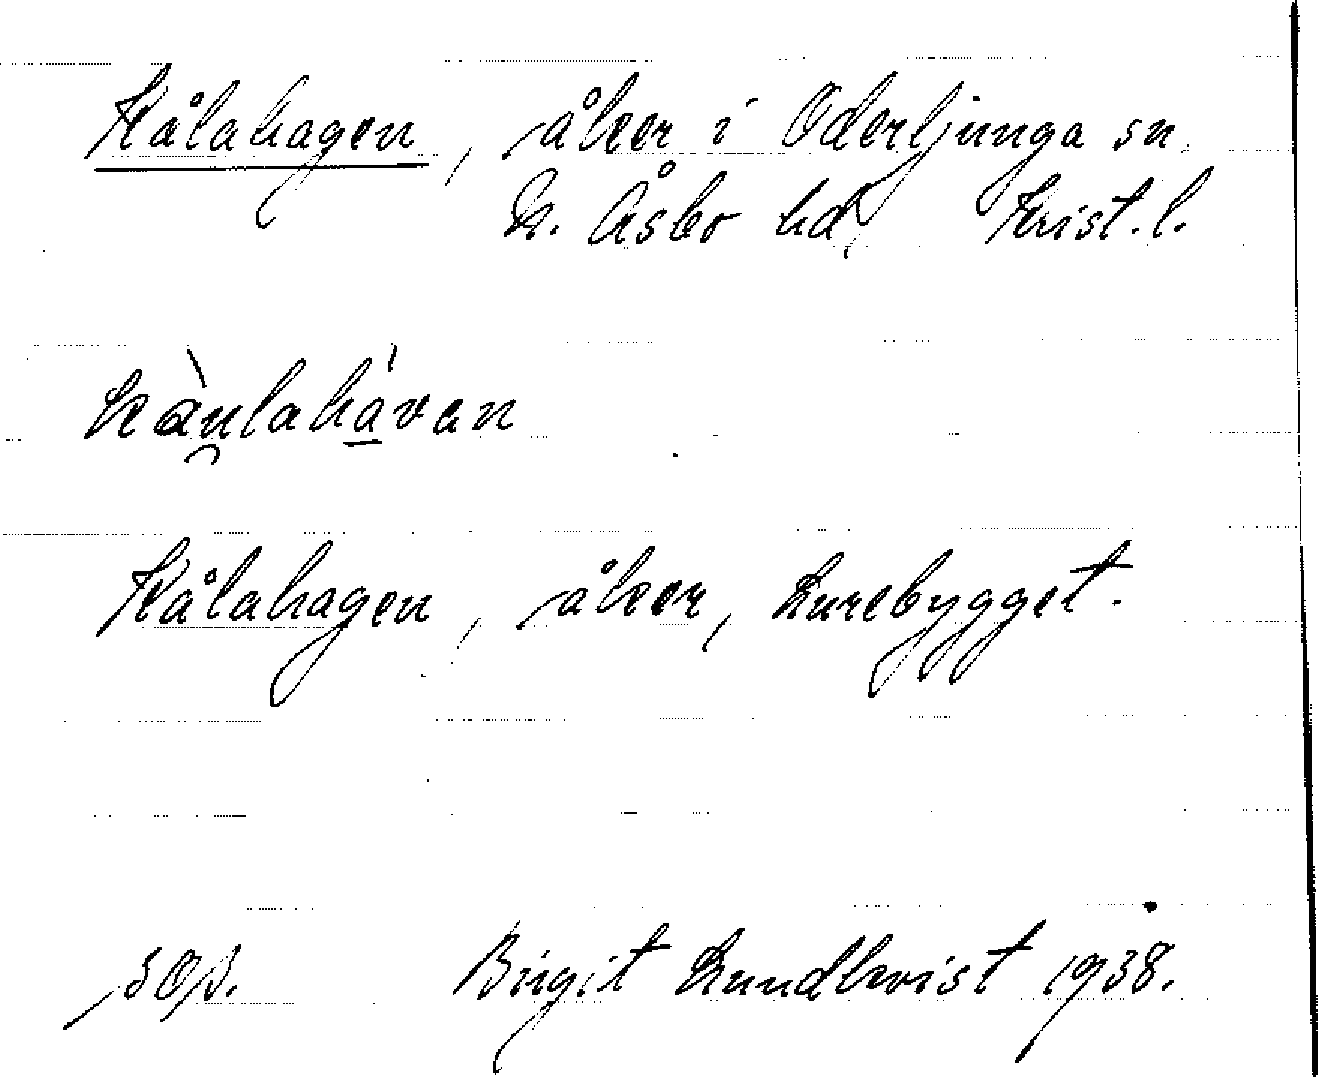 Kålahagen, åker i Oderljunga sn.
N. Åsbo hd, Krist. l.
kàu̯lahá̱van
Kålahagen, åker, Lurebygget.
Birgit Lundkvist 1938.